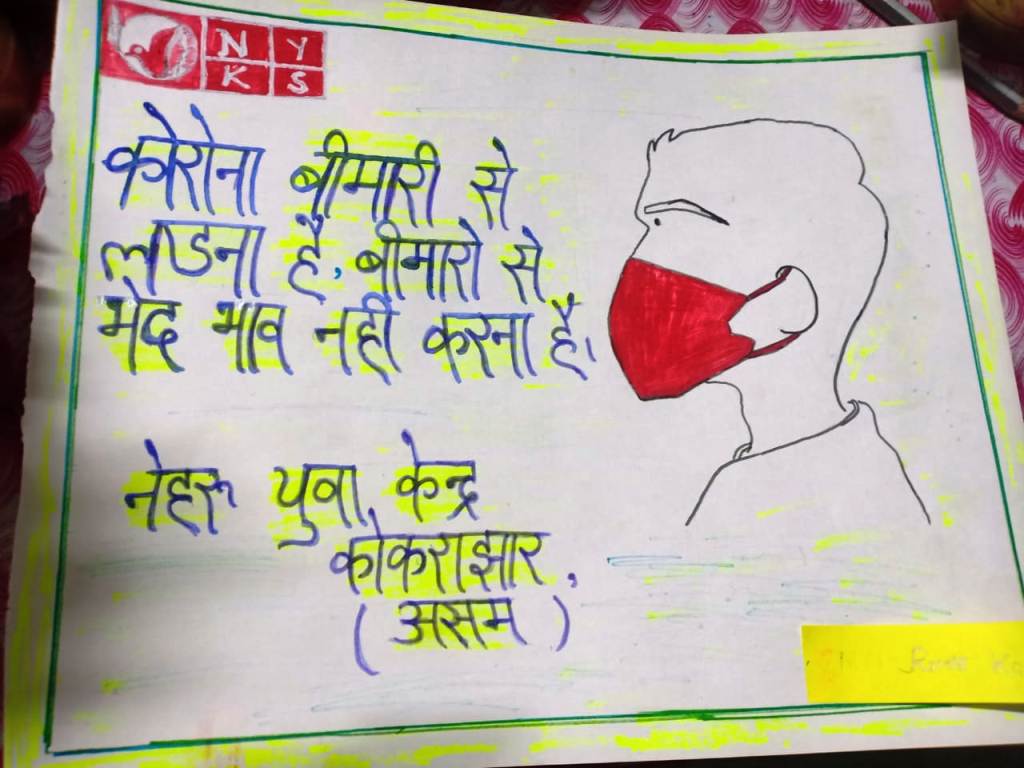 N Y
K S
कोरोना बीमारी से
लण्डना है, बीमारो से
भेद भाव नहीं करना है।
नेहरू युवा केन्द्र
कोकराझार,
(असम)